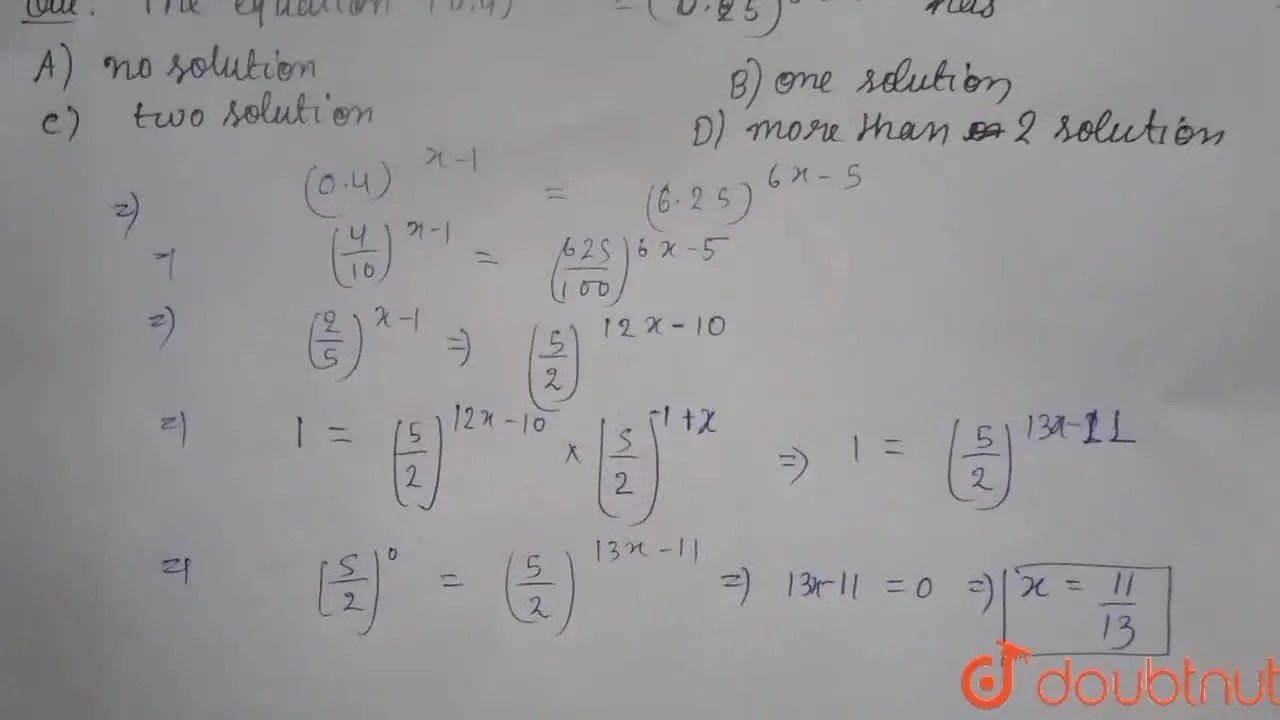 Que. The equation (0.4) = (6.25) has
A) no solution B) one solution
C) two solution D) more than 2 solution
=) (0.4)^{x-1} = (6.25)^{6x-5}
=) (4/10)^{x-1} = (625/100)^{6x-5}
=) (2/5)^{x-1} => (5/2)^{12x-10}
=) 1 = (5/2)^{12x-10} × (5/2)^{-1+x} => 1 = (5/2)^{13x-11}
=) (5/2)^0 = (5/2)^{13x-11} => 13x-11 = 0 => x = 11/13
doubtnut